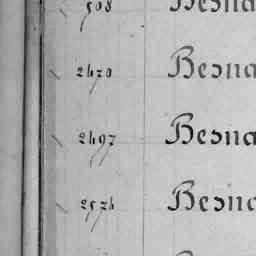 508 Besna
2470 Besna
2497 Besna
2574 Besna